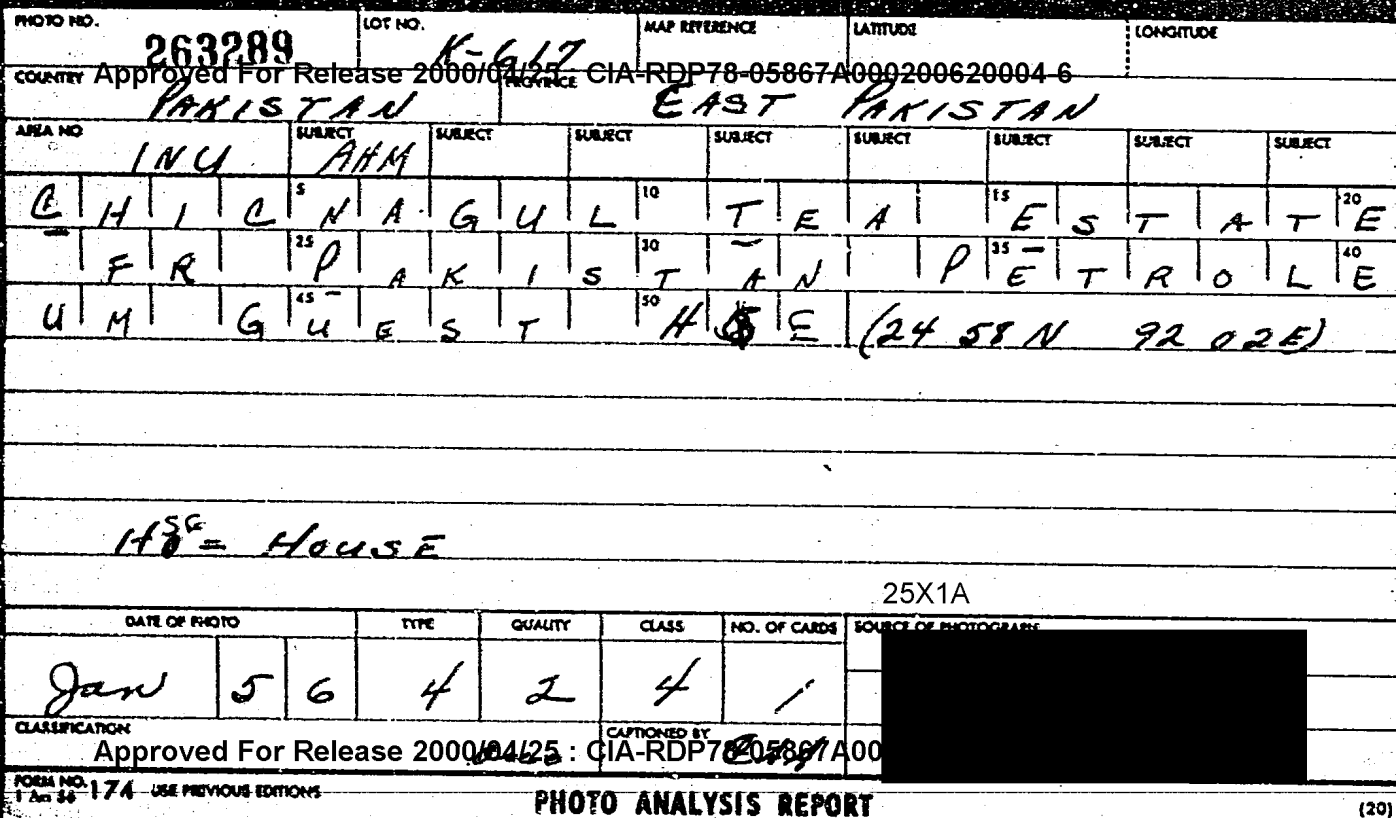 PHOTO NO. LOT NO. MAP REFERENCE LATITUDE LONGITUDE
263289 K-617
COUNTRY Approved For Release 2000/04/25 : CIA-RDP78-05867A000200620004-6
PROVINCE
PAKISTAN EAST PAKISTAN
AREA NO SUBJECT SUBJECT SUBJECT SUBJECT SUBJECT SUBJECT SUBJECT SUBJECT
INU AHM
5 10 15 20
CHICNAGUL TEA ESTATE
25 30 35 40
FR PAKISTAN PETROLE
45 50
UM GUEST HSE (24 58 N 92 02E)
HSE = HOUSE
25X1A
DATE OF PHOTO TYPE QUALITY CLASS NO. OF CARDS SOURCE OF PHOTOGRAPH
Jan 5 6 4 2 4 1
CLASSIFICATION CAPTIONED BY
Approved For Release 2000/04/25 : CIA-RDP78-05867A00
FORM NO. 174 USE PREVIOUS EDITIONS
1 Apr 56
PHOTO ANALYSIS REPORT (20)